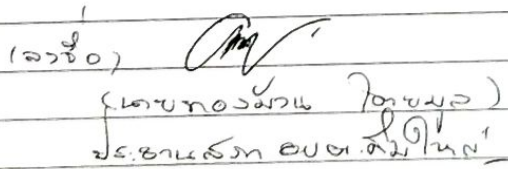 (ลงชื่อ)
(นายทองม้วน
ประธานสภา อบต.คึมใหญ่